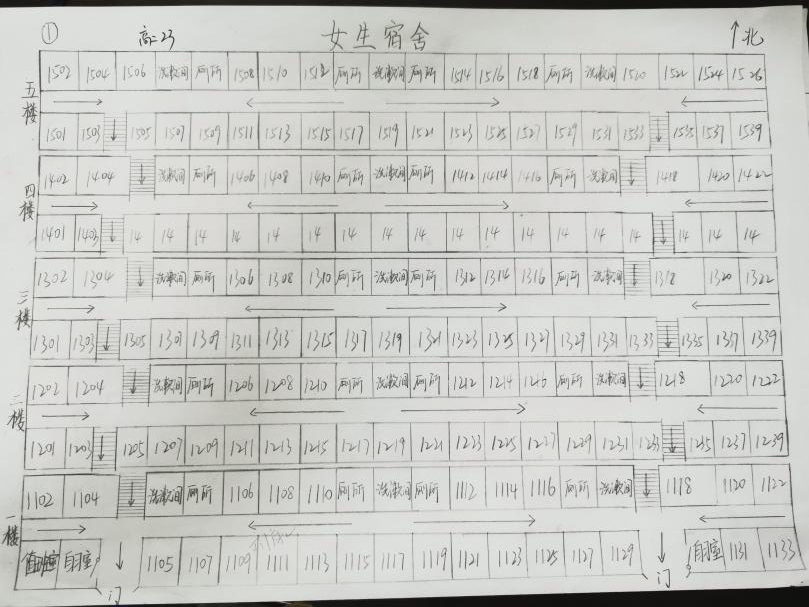 ① 高二23 女生宿舍 ↑北
五楼
1502 1504 1506 洗漱间 厕所 1508 1510 1512 厕所 洗漱间 厕所 1514 1516 1518 厕所 洗漱间 1520 1522 1524 1526
1501 1503 1505 1507 1509 1511 1513 1515 1517 1519 1521 1523 1525 1527 1529 1531 1533 1535 1537 1539
四楼
1402 1404 洗漱间 厕所 1406 1408 1410 厕所 洗漱间 厕所 1412 1414 1416 厕所 洗漱间 1418 1420 1422
1401 1403 14 14 14 14 14 14 14 14 14 14 14 14 14 14 14 14 14 14
三楼
1302 1304 洗漱间 厕所 1306 1308 1310 厕所 洗漱间 厕所 1312 1314 1316 厕所 洗漱间 1318 1320 1322
1301 1303 1305 1307 1309 1311 1313 1315 1317 1319 1321 1323 1325 1327 1329 1331 1333 1335 1337 1339
二楼
1202 1204 洗漱间 厕所 1206 1208 1210 厕所 洗漱间 厕所 1212 1214 1216 厕所 洗漱间 1218 1220 1222
1201 1203 1205 1207 1209 1211 1213 1215 1217 1219 1221 1223 1225 1227 1229 1231 1233 1235 1237 1239
一楼
1102 1104 洗漱间 厕所 1106 1108 1110 厕所 洗漱间 厕所 1112 1114 1116 厕所 洗漱间 1118 1120 1122
1105 1107 1109 1111 1113 1115 1117 1119 1121 1123 1125 1127 1129 1131 1133
门 门